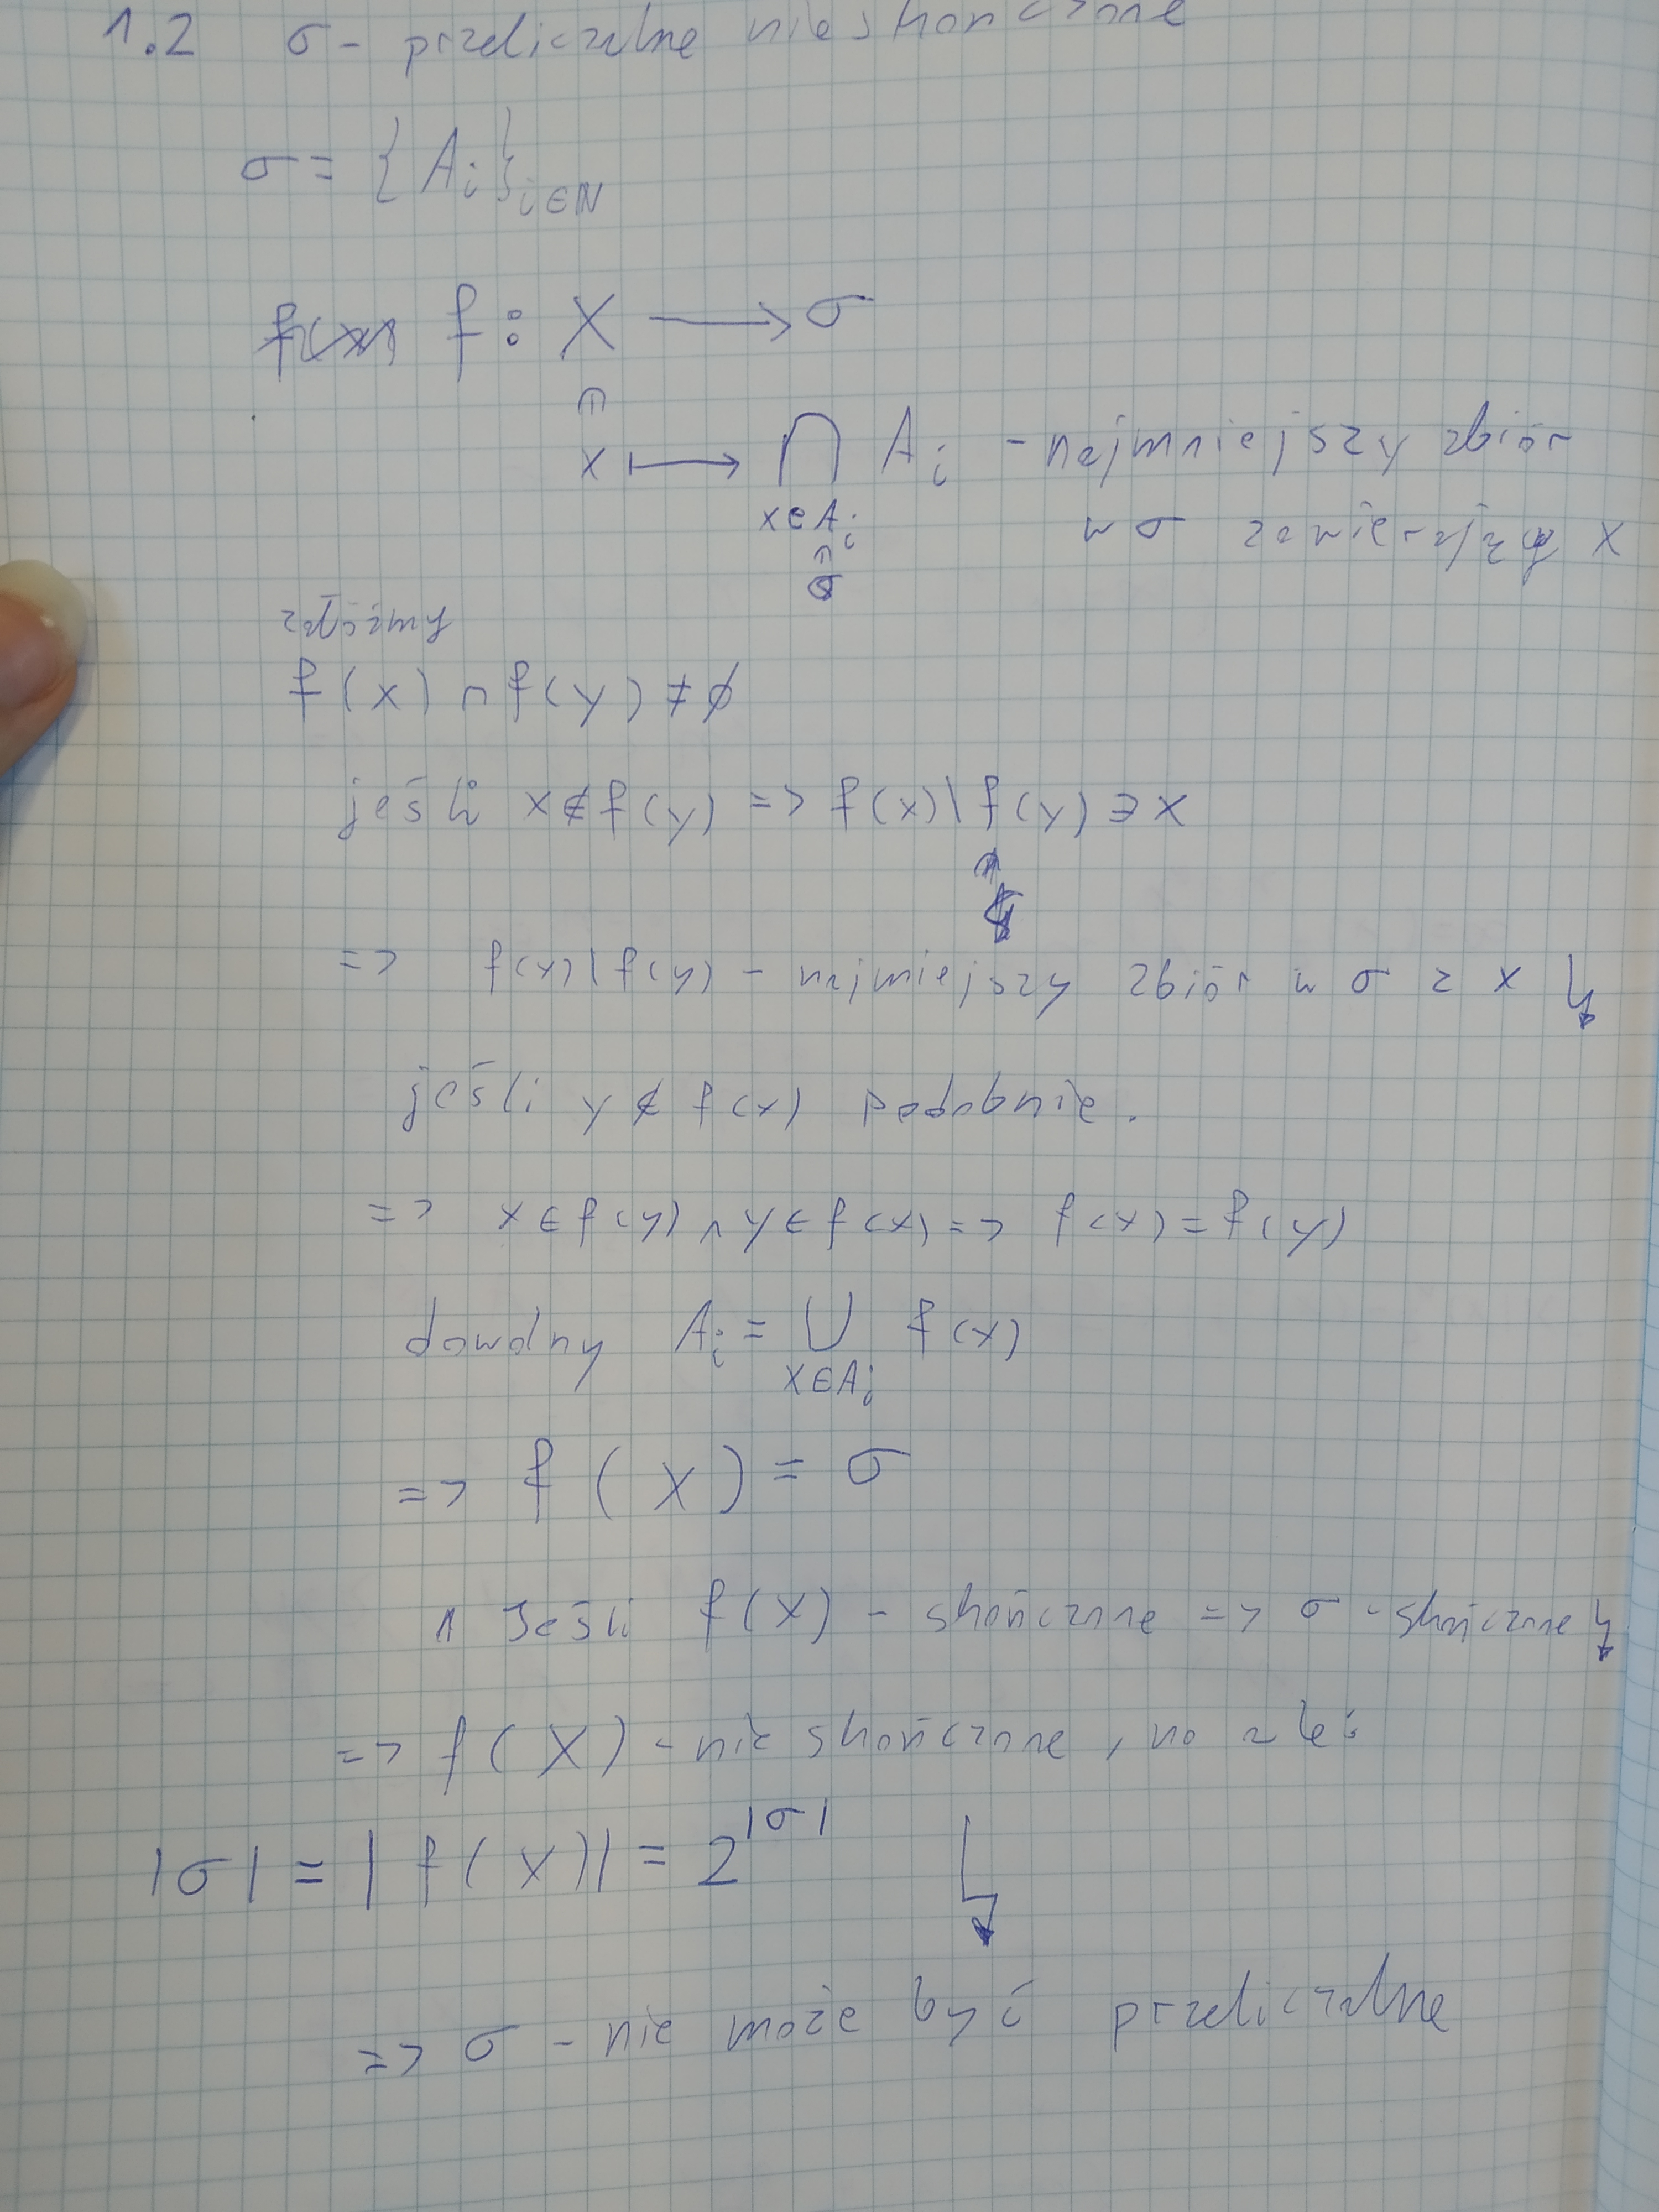 1.2 σ - przeliczalne nieskończone
σ = {A_i}_{i∈ℕ}
f : X ⟶ σ
x ⟼ ⋂_{x∈A_i∈σ} A_i - najmniejszy zbiór
w σ zawierający x
załóżmy
f(x) ∩ f(y) ≠ ∅
jeśli x ∉ f(y) => f(x)\f(y) ∋ x
=> f(x)\f(y) - najmiejszy zbiór w σ z x ↯
jeśli y ∉ f(x) podobnie.
=> x ∈ f(y) ∧ y ∈ f(x) => f(x) = f(y)
dowolny A_i = ⋃_{x∈A_i} f(x)
=> f(X) = σ
Jeśli f(X) - skończone => σ - skończone ↯
=> f(X) - nieskończone, no ale
|σ| = |f(X)| = 2^{|σ|} ↯
=> σ - nie może być przeliczalne